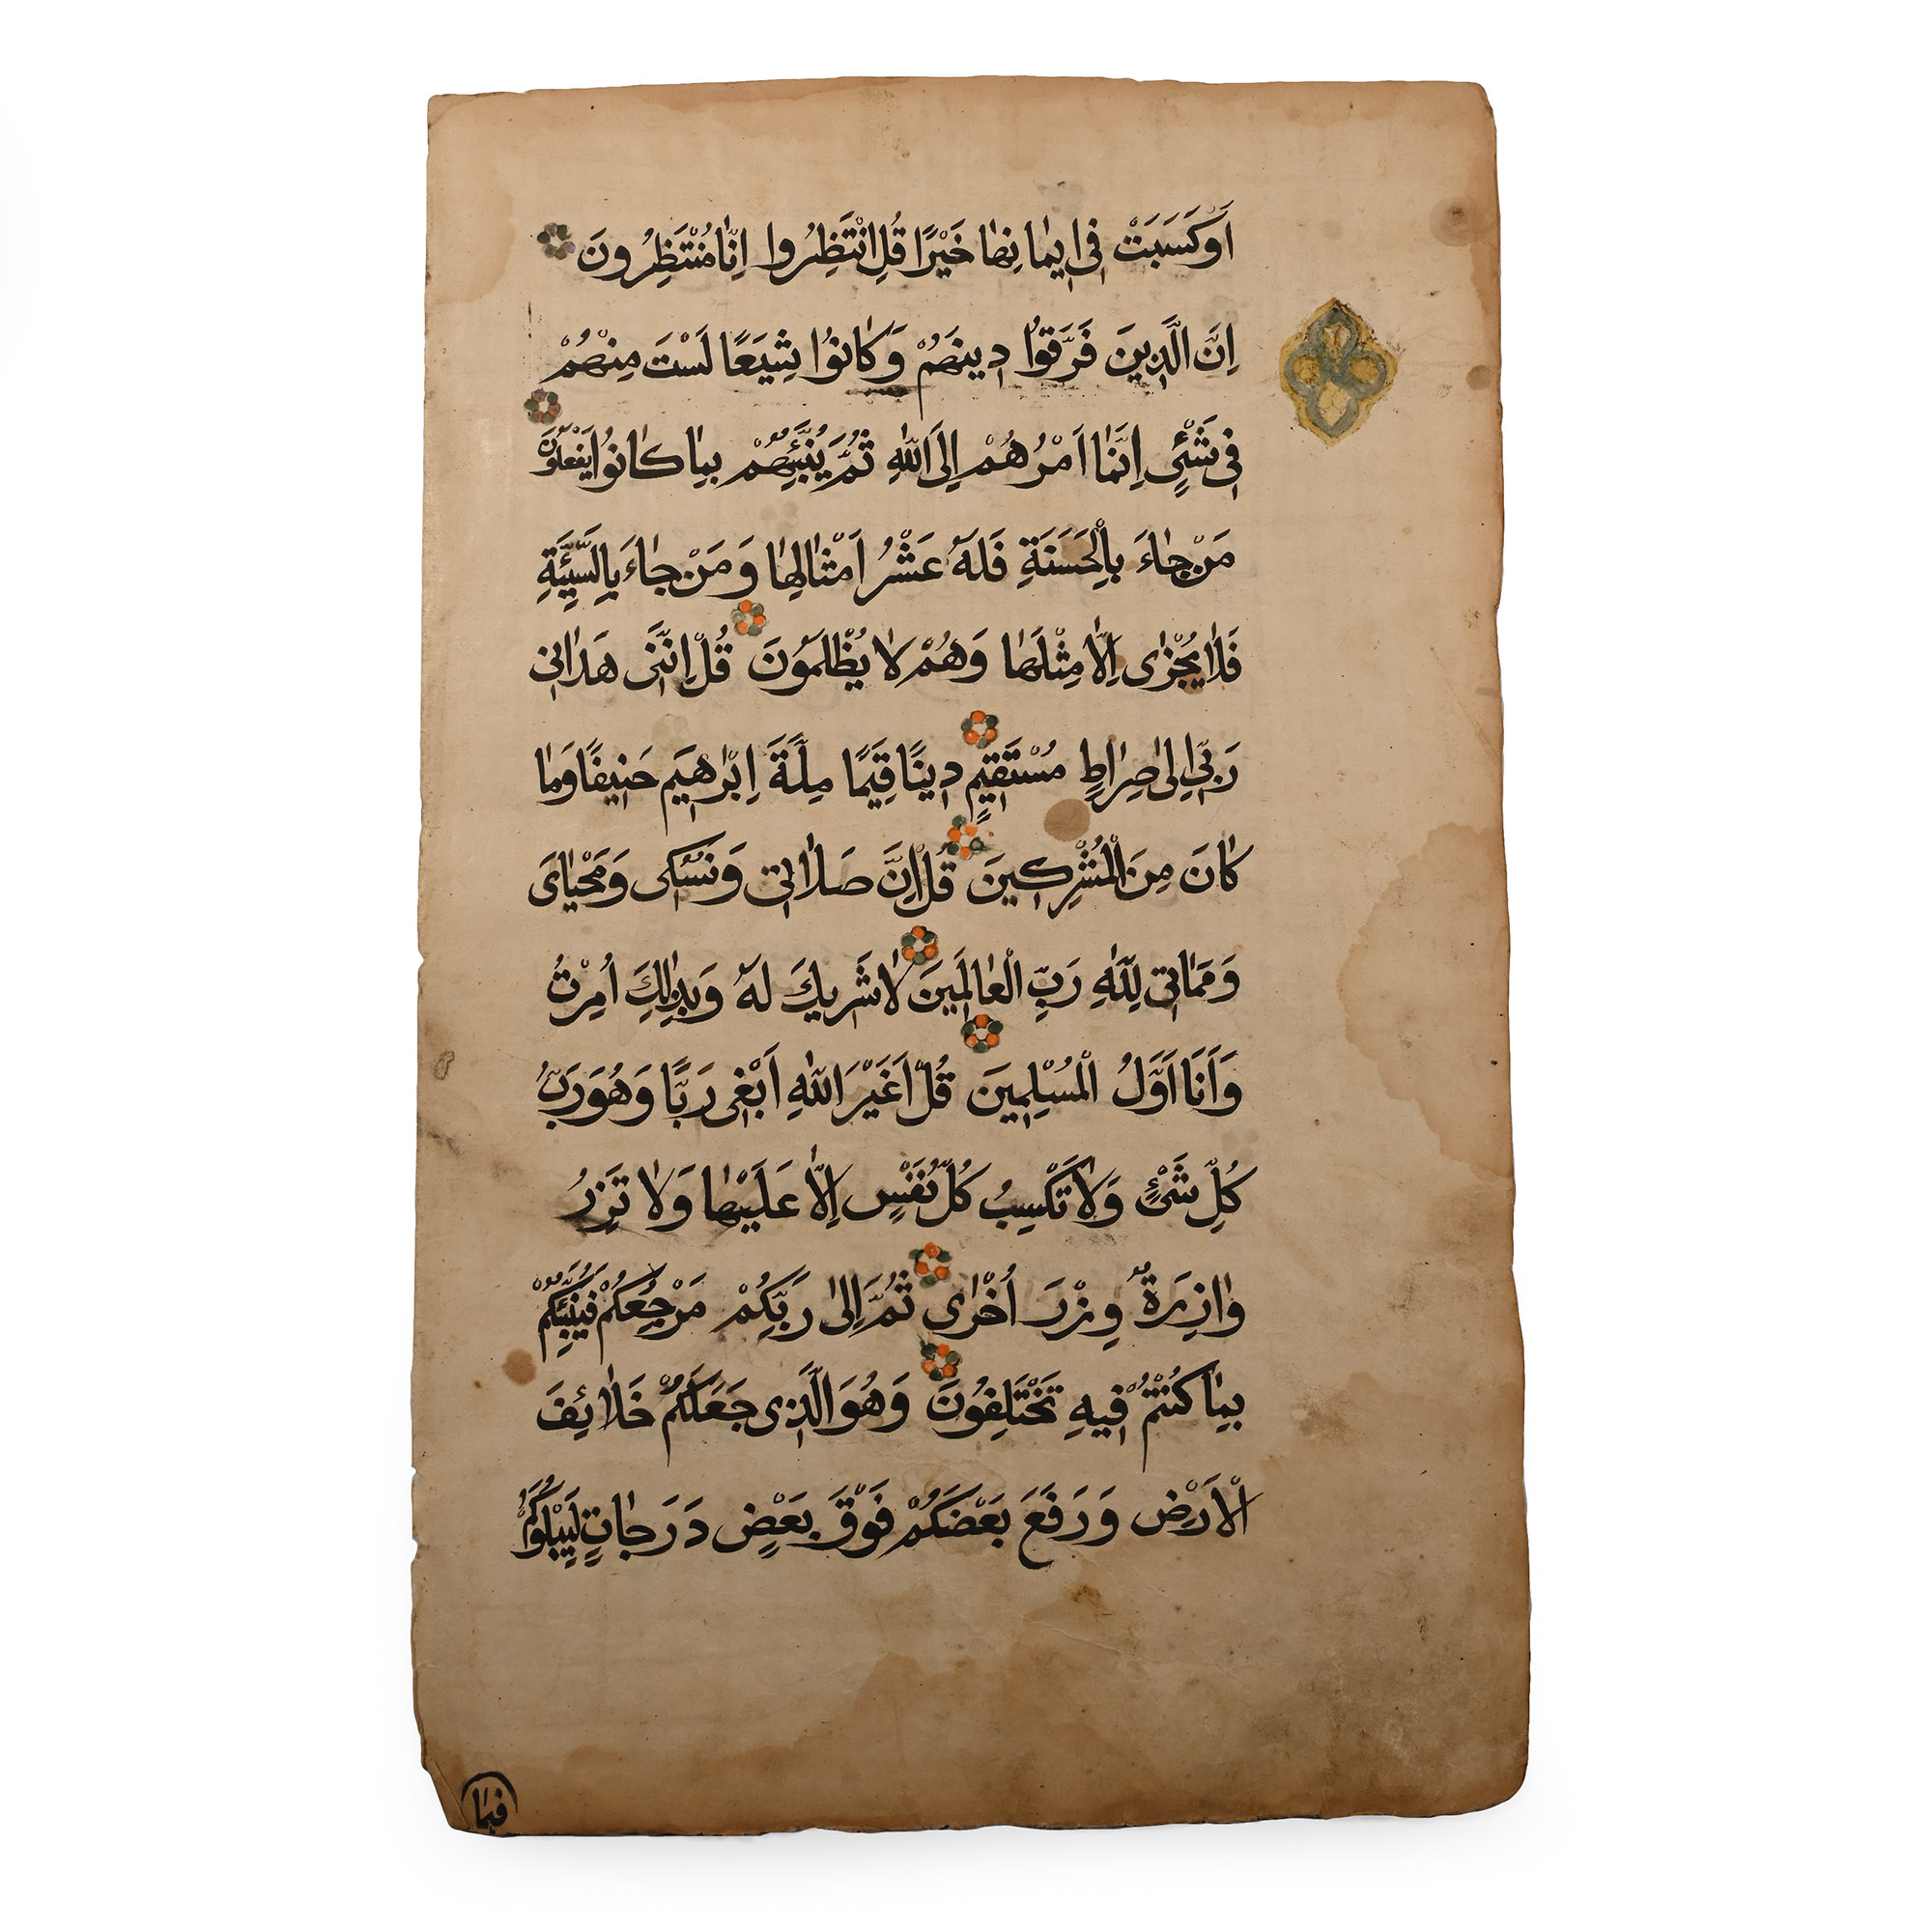 اَوْكَسَبَتْ فِى اِيمَانِهَا خَيْرًا قُلِ انْتَظِرُوا اِنَّا مُنْتَظِرُونَ
اِنَّ الَّذِينَ فَرَّقُوا دِينَهُمْ وَكَانُوا شِيَعًا لَسْتَ مِنْهُمْ
فِى شَىْءٍ اِنَّمَا اَمْرُهُمْ اِلَى اللّٰهِ ثُمَّ يُنَبِّئُهُمْ بِمَا كَانُوا يَفْعَلُونَ
مَنْ جَاءَ بِالْحَسَنَةِ فَلَهُ عَشْرُ اَمْثَالِهَا وَمَنْ جَاءَ بِالسَّيِّئَةِ
فَلَا يُجْزٰى اِلَّا مِثْلَهَا وَهُمْ لَا يُظْلَمُونَ قُلْ اِنَّنِى هَدَانِى
رَبِّى اِلٰى صِرَاطٍ مُسْتَقِيمٍ دِينًا قِيَمًا مِلَّةَ اِبْرٰهِيمَ حَنِيفًا وَمَا
كَانَ مِنَ الْمُشْرِكِينَ قُلْ اِنَّ صَلَاتِى وَنُسُكِى وَمَحْيَاىَ
وَمَمَاتِى لِلّٰهِ رَبِّ الْعَالَمِينَ لَا شَرِيكَ لَهُ وَبِذٰلِكَ اُمِرْتُ
وَاَنَا اَوَّلُ الْمُسْلِمِينَ قُلْ اَغَيْرَ اللّٰهِ اَبْغِى رَبًّا وَهُوَ رَبُّ
كُلِّ شَىْءٍ وَلَا تَكْسِبُ كُلُّ نَفْسٍ اِلَّا عَلَيْهَا وَلَا تَزِرُ
وَازِرَةٌ وِزْرَ اُخْرٰى ثُمَّ اِلٰى رَبِّكُمْ مَرْجِعُكُمْ فَيُنَبِّئُكُمْ
بِمَا كُنْتُمْ فِيهِ تَخْتَلِفُونَ وَهُوَ الَّذِى جَعَلَكُمْ خَلَائِفَ
الْاَرْضِ وَرَفَعَ بَعْضَكُمْ فَوْقَ بَعْضٍ دَرَجَاتٍ لِيَبْلُوَكُمْ
فِيمَا